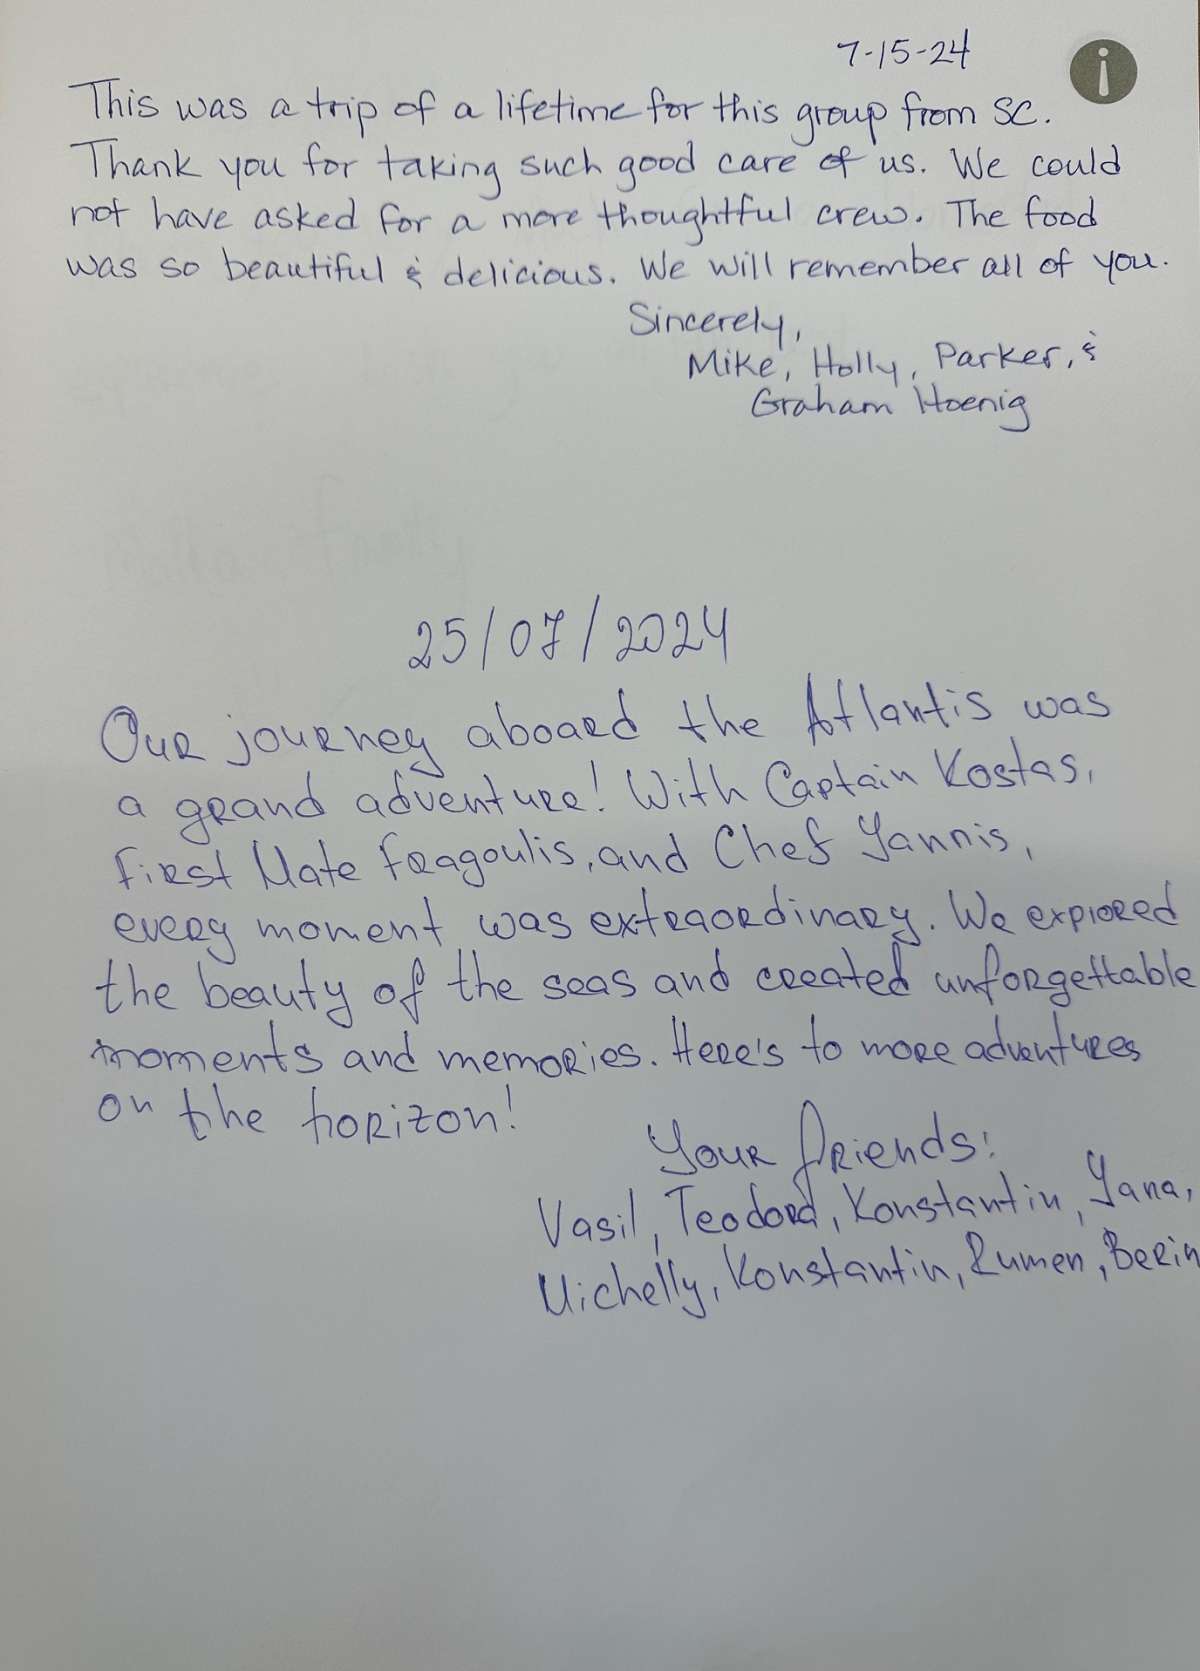 7-15-24
This was a trip of a lifetime for this group from SC.
Thank you for taking such good care of us. We could
not have asked for a more thoughtful crew. The food
was so beautiful & delicious. We will remember all of you.
Sincerely,
Mike, Holly, Parker, &
Graham Hoenig
25/07/2024
Our journey aboard the Atlantis was
a grand adventure! With Captain Kostas,
First Mate Fragoulis, and Chef Yannis,
every moment was extraordinary. We explored
the beauty of the seas and created unforgettable
moments and memories. Here's to more adventures
on the horizon!
Your friends:
Vasil, Teodora, Konstantin, Yana,
Michelly, Konstantin, Rumen, Berin